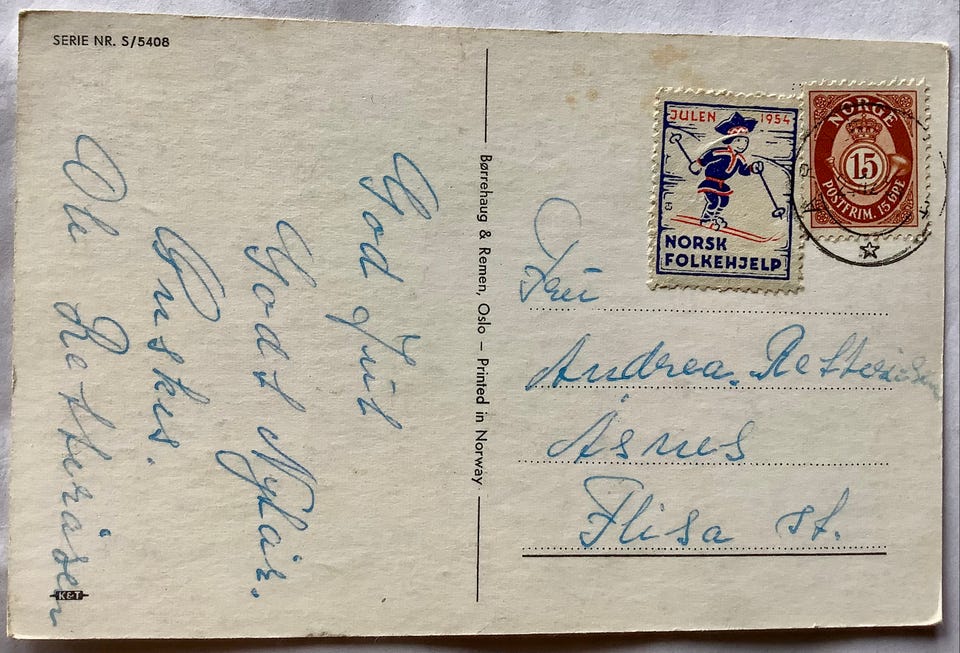 SERIE NR. S/5408
God Jul
Godt Nyttår.
Ønskes.
Ole Retteråsen
K&T
Børrehaug & Remen, Oslo – Printed in Norway
JULEN 1954
NORSK
FOLKEHJELP
NORGE
15
POSTFRIM. 15 ØRE
Fru
Andrea. Retteråsen
Åsnes
Flisa st.